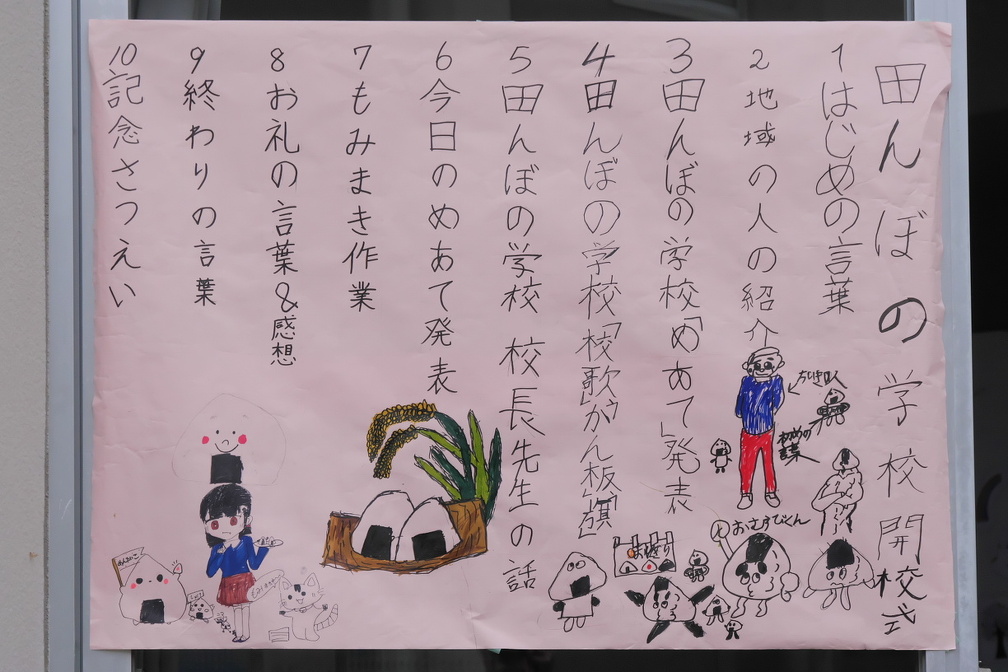 田んぼの学校開校式
1はじめの言葉
2地域の人の紹介
3田んぼの学校「めあて」発表
4田んぼの学校「校歌」「がん板」「旗」
5田んぼの学校 校長先生の話
6今日のめあて発表
7もみまき作業
8お礼の言葉&感想
9終わりの言葉
10記念さつえい
おむすびくん